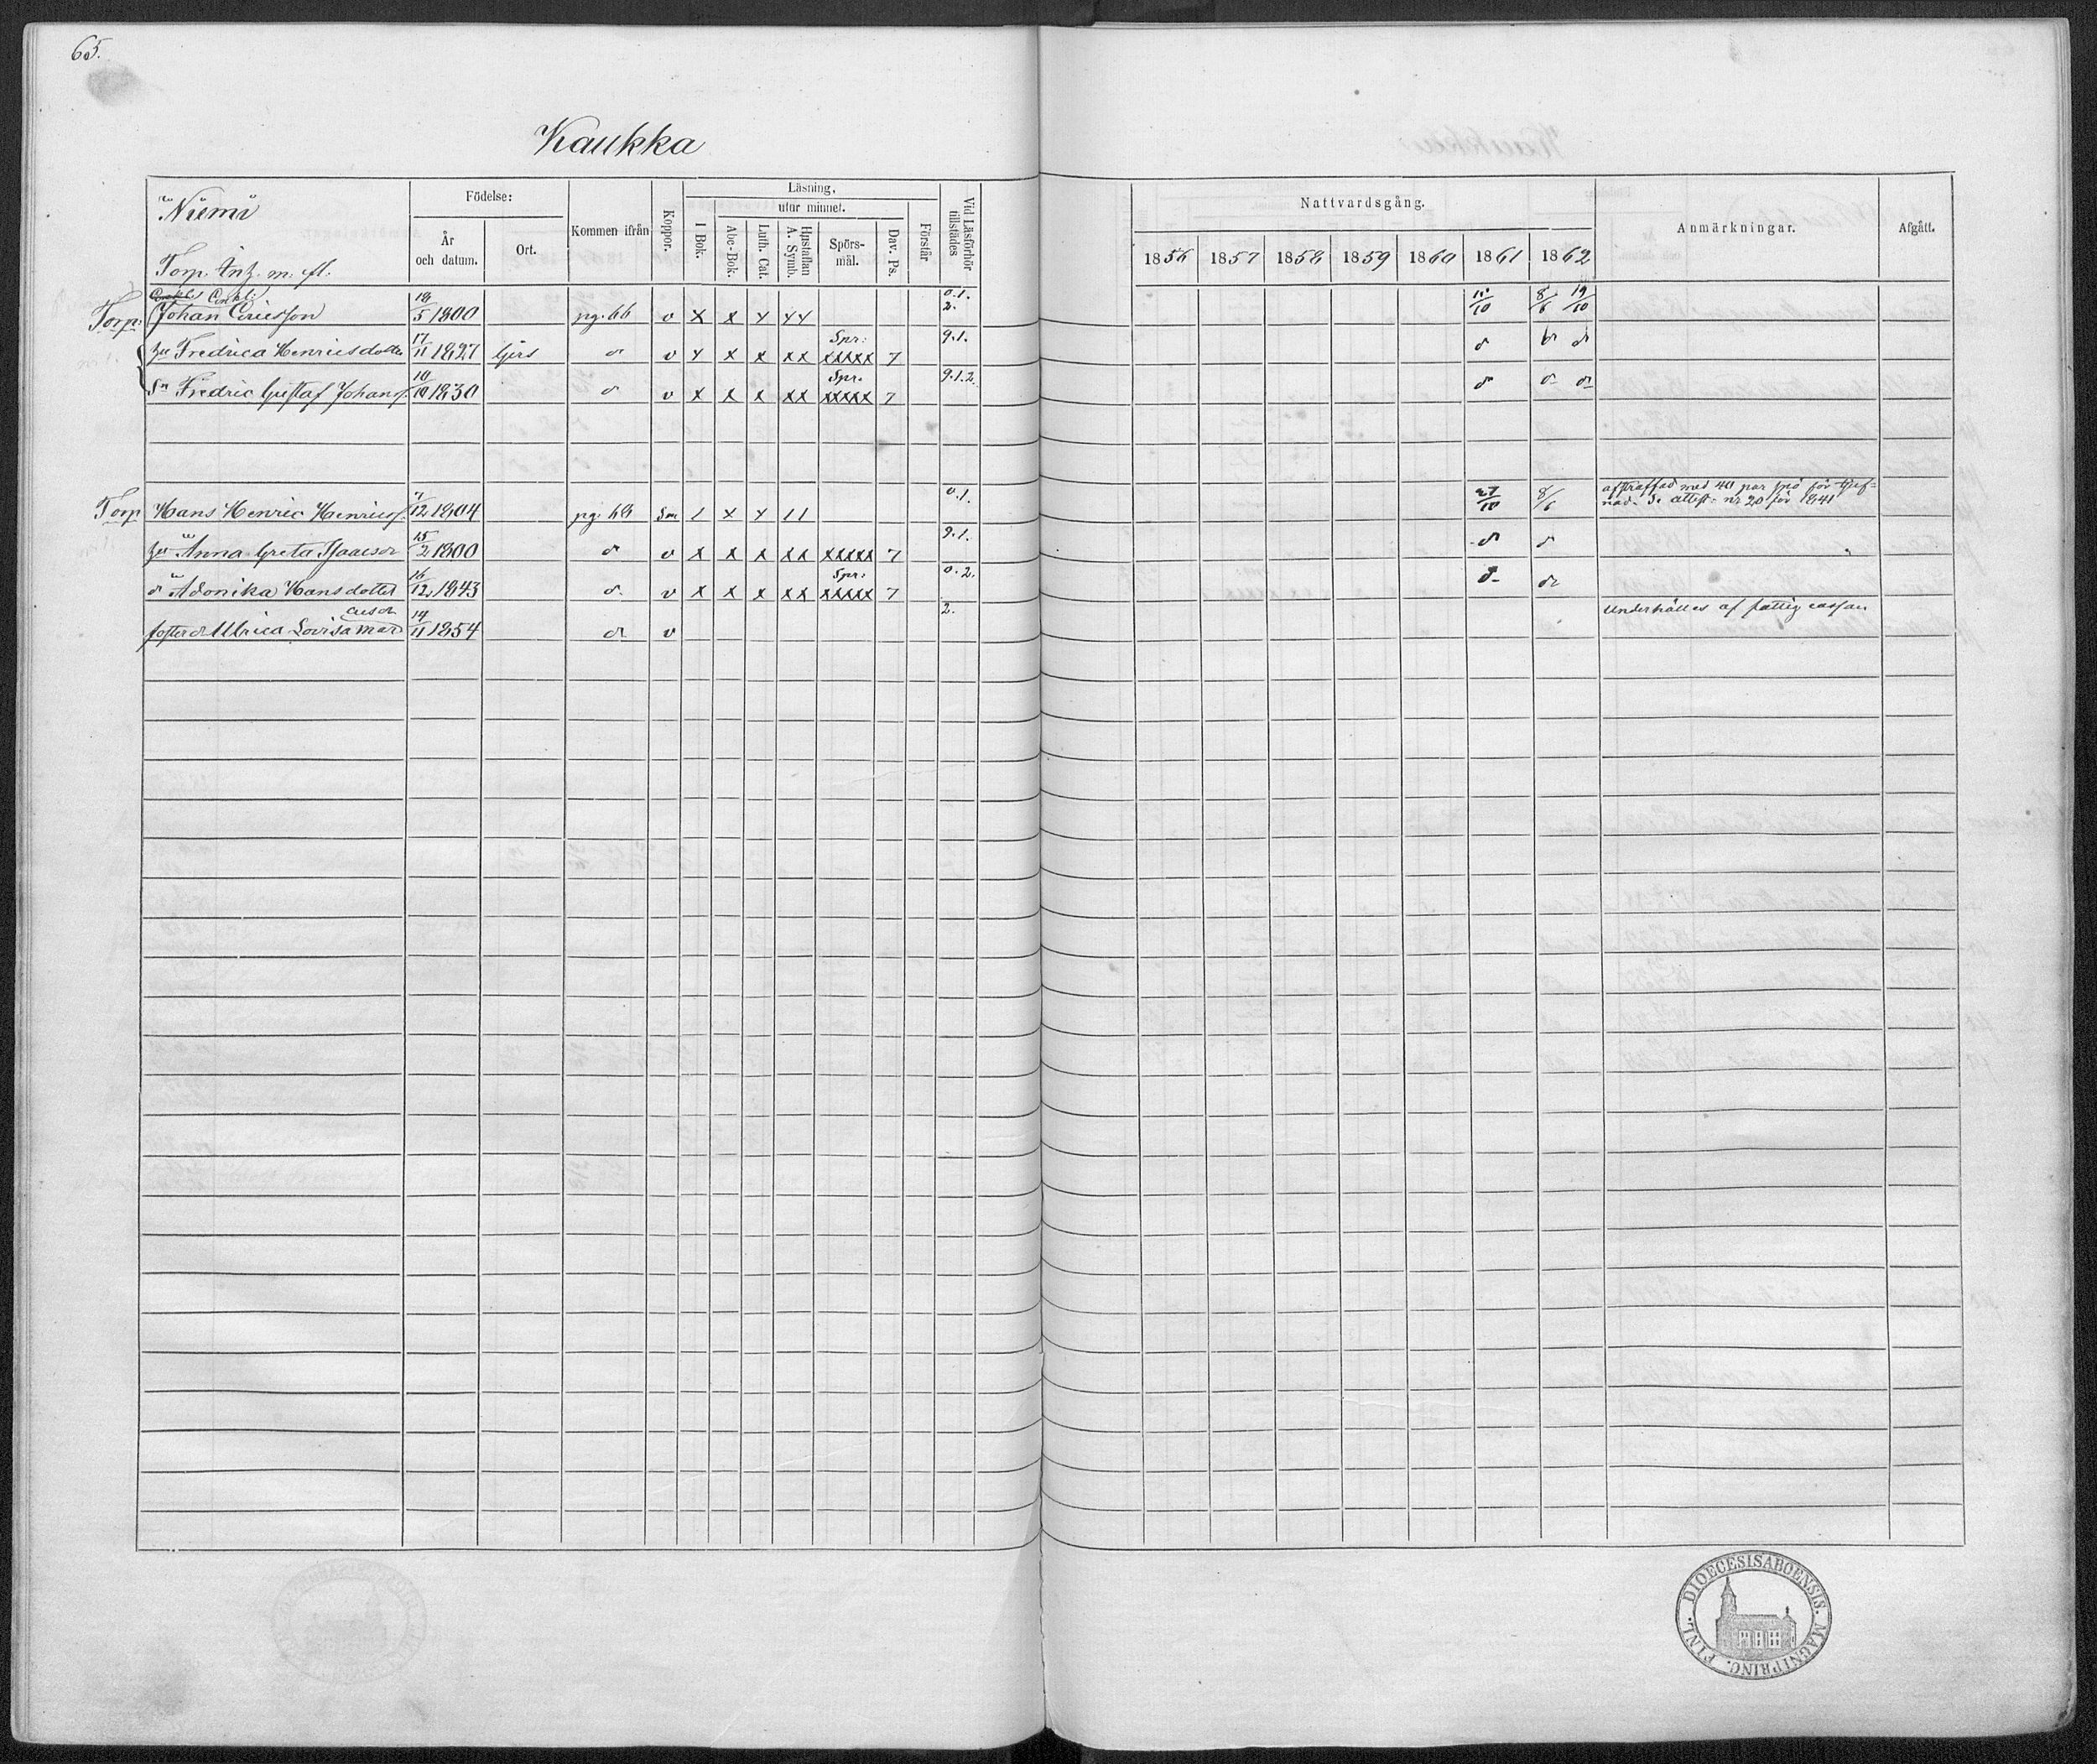 65.
Kaukka
Niemi
Torp. Inh. m. fl.
Födelse:
År och datum.
Ort.
Kommen ifrån
Koppor.
Läsning,
utur minnet.
I Bok.
Abc-Bok.
Luth. Cat.
Hustaflan A. Symb.
Spörs-mål.
Dav. Ps.
Förstår
Vid Läsförhör tillstädes
Nattvardsgång.
1856 1857 1858 1859 1860 1861 1862
Anmärkningar.
Afgått.
Torp. Johan Ericsson 18/5 1800 pg. 66 v x x x x x 0.1. 2. 11/10 8/6 19/10
hu Fredrica Henricsdotter 17/11 1827 d v x x x xx Spr: xxxxx 7 9.1. d d d
Sn Fredric Gustaf Johanss. 10/10 1830 d v x x x xx Spr. xxxxx 7 9.1.2. d d d
Torp Hans Henric Henricss. 12 1804 pg. 68 1 x x 11 0.1. 27/10 8/6 afstraffad med 40 par spö för tjuf-
nad. Se attest: nr 20 för 1841
hu Anna Greta Isaacsdr 15/2 1800 d v x x x xx xxxxx 7 9.1. d d
dr Adonika Hansdotter 16/12 1843 d v x x x xx Spr: xxxxx 7 0.2. d d
foster dr Ulrica Lovisa Marcusdr 14/11 1854 d v 2. Underhålles af fattig cassan
DIOECESIS ABOENSIS. MAGNI PRINC. FINL.